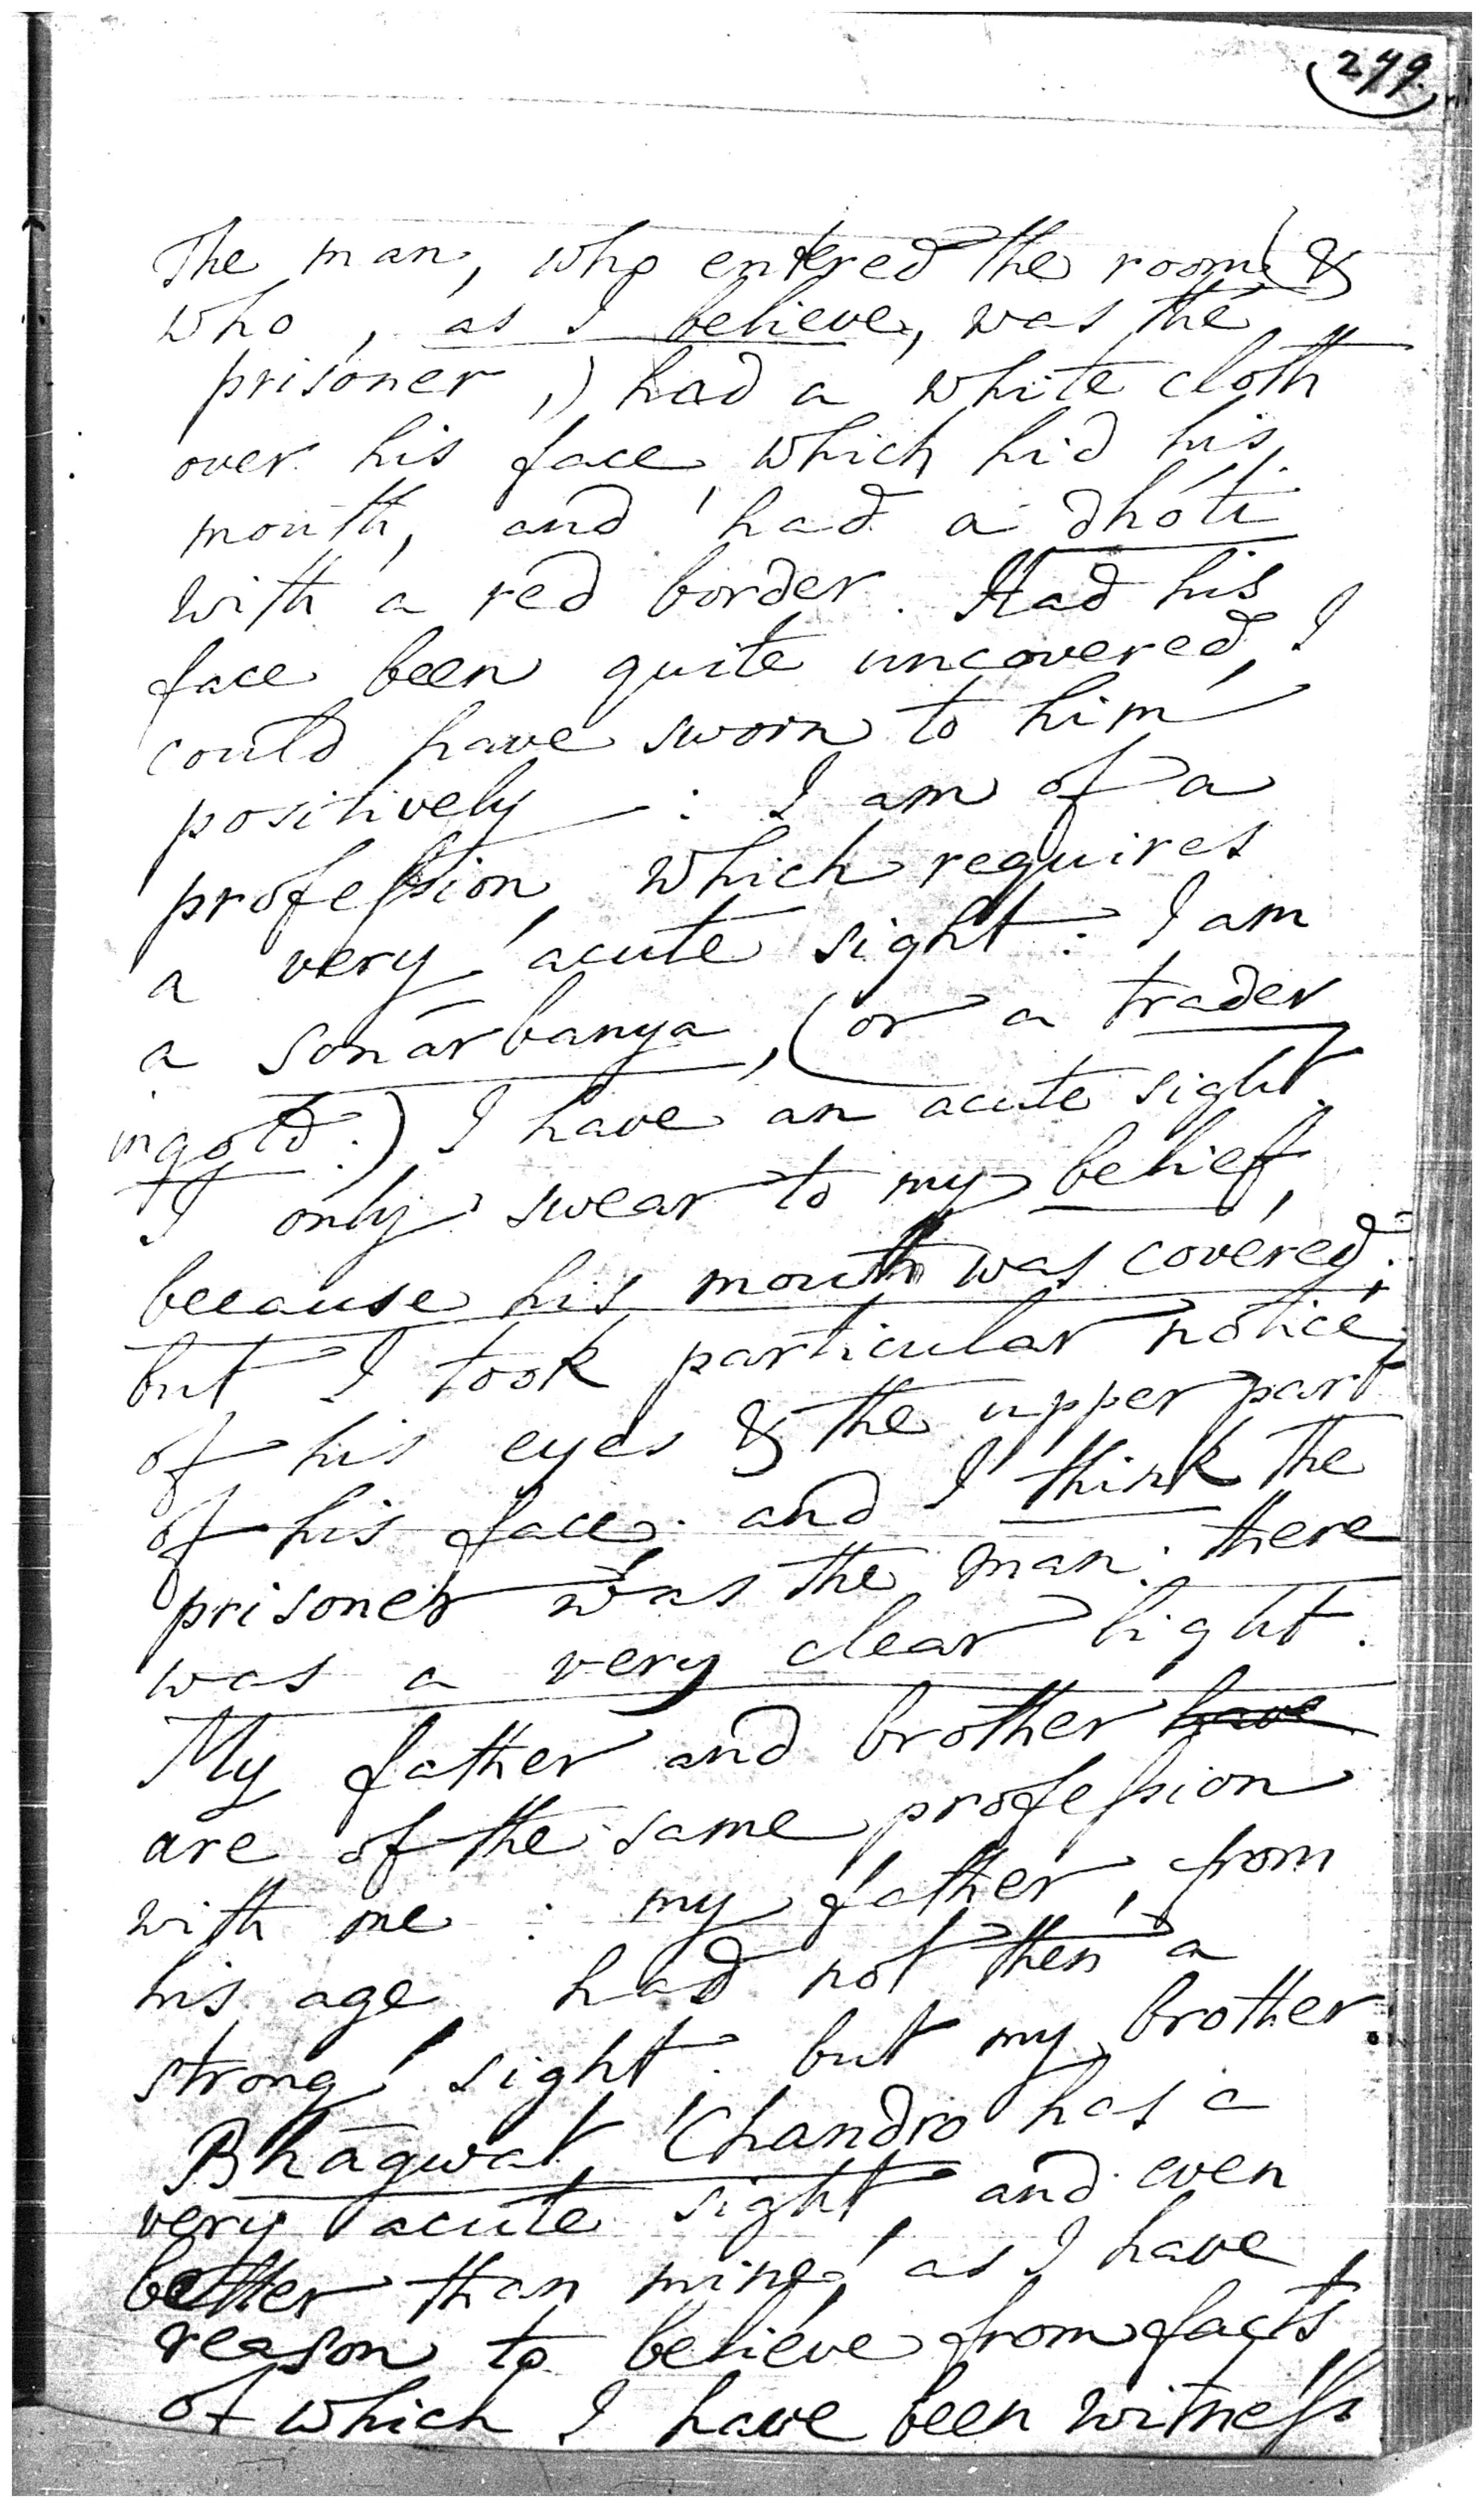 279.
The man, who entered the room (&
who, as I believe, was the
prisoner,) had a white cloth
over his face, which hid his
mouth, and had a dhóti
with a red border. Had his
face been quite uncovered, I
could have sworn to him
positively : I am of a
profession, which requires
a very acute sight : I am
a sonár banya, (or a trader
in gold.) I have an acute sight.
I only swear to my belief,
because his mouth was covered;
but I took particular notice
of his eyes & the upper part
of his face; and I think the
prisoner was the man. there
was a very clear light.
My father and brother have
are of the same profession
with me : my father, from
his age, had not then a
strong sight : but my brother
Bhágwat Chandro has a
very acute sight, and even
better than mine, as I have
reason to believe from facts
of which I have been witness